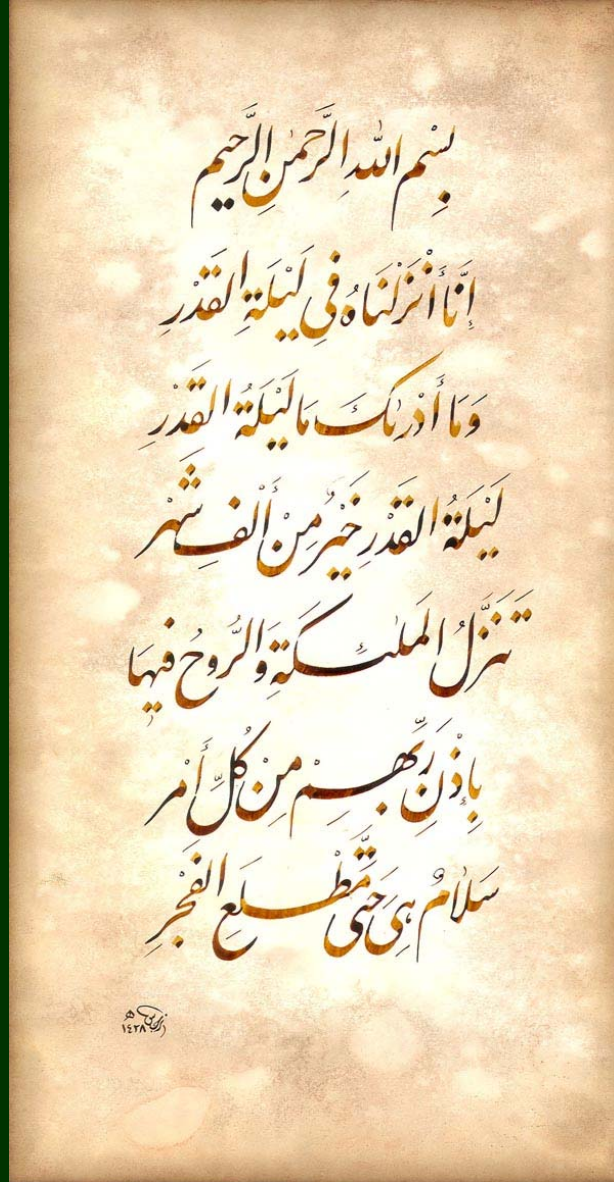 بِسْمِ اللهِ الرَّحْمٰنِ الرَّحِيمِ
إِنَّا أَنْزَلْنَاهُ فِي لَيْلَةِ القَدْرِ
وَمَا أَدْرٰىكَ مَا لَيْلَةُ القَدْرِ
لَيْلَةُ القَدْرِ خَيْرٌ مِنْ أَلْفِ شَهْرٍ
تَنَزَّلُ المَلٰئِكَةُ وَالرُّوحُ فِيهَا
بِإِذْنِ رَبِّهِمْ مِنْ كُلِّ أَمْرٍ
سَلَامٌ هِيَ حَتَّى مَطْلَعِ الفَجْرِ
١٤٢٨ ه